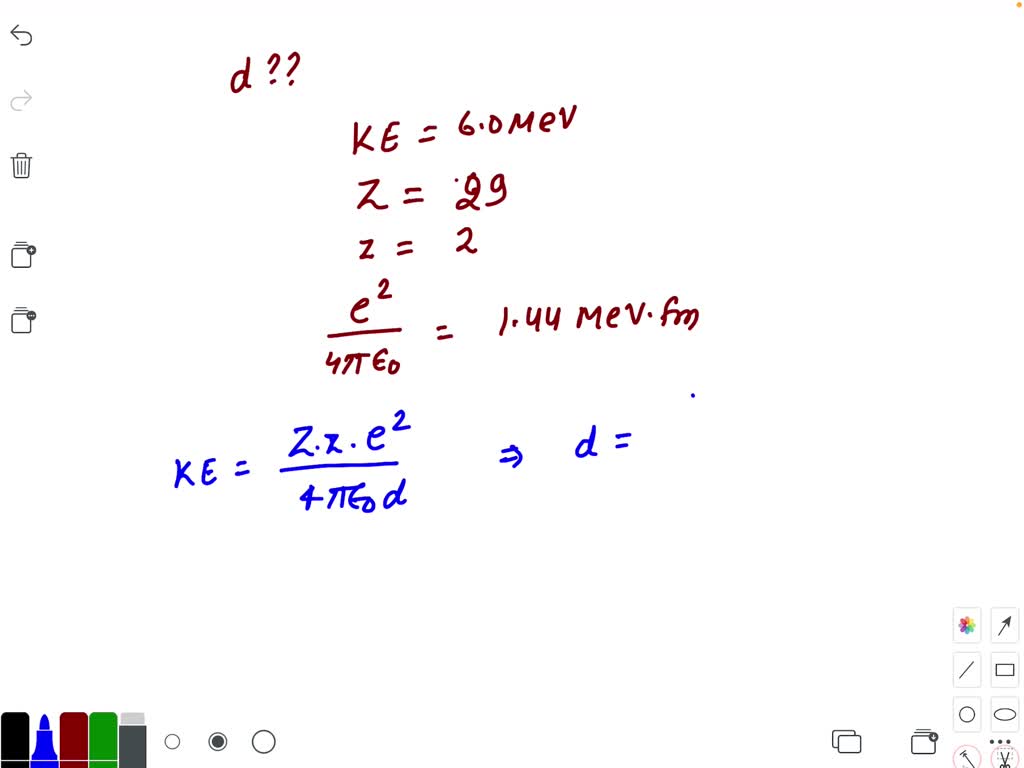 d ??
KE = 6.0 MeV
Z = 29
z = 2
e²/4πϵ₀ = 1.44 MeV·fm
KE = Z·z·e²/4πϵ₀d ⇒ d =